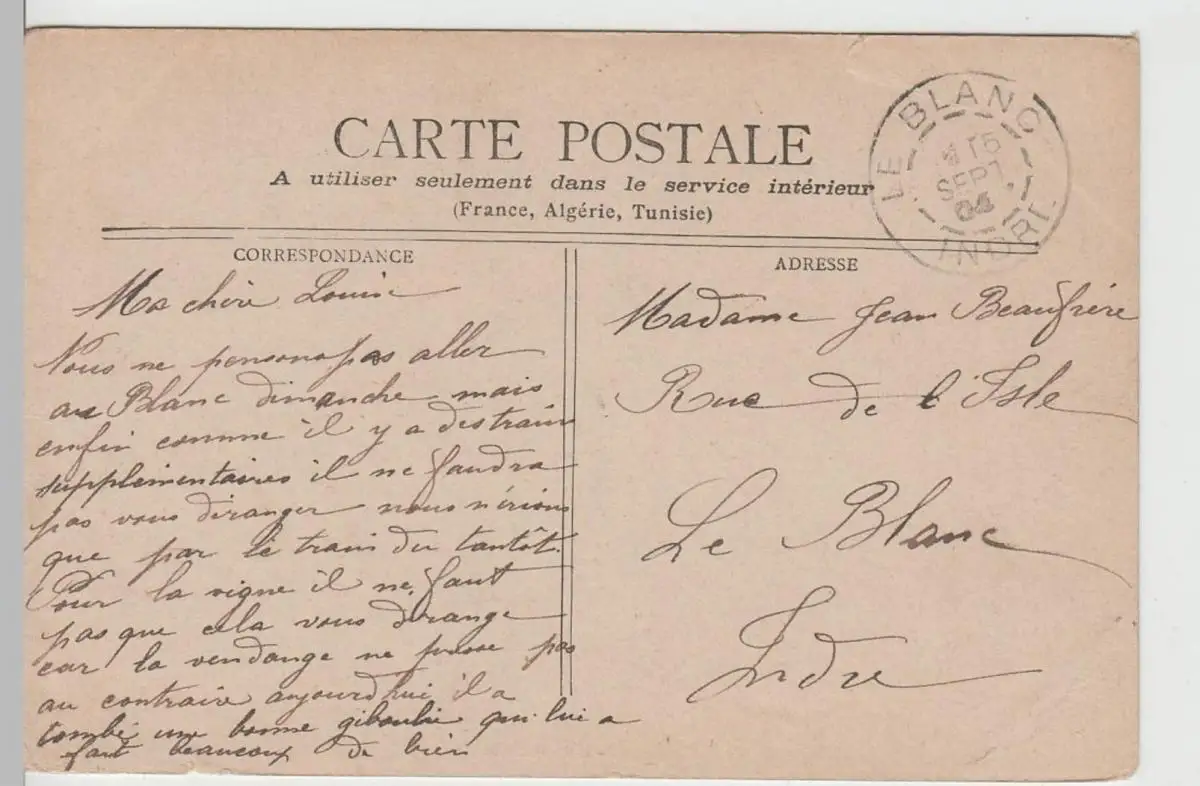 CARTE POSTALE
A utiliser seulement dans le service intérieur
(France, Algérie, Tunisie)
LE BLANC
15
SEPT
04
INDRE
CORRESPONDANCE
Ma chère Louise
Nous ne pensons pas aller
au Blanc dimanche mais
enfin comme il y a des trains
supplémentaires il ne faudra
pas vous déranger nous n'irions
que par le train du tantôt.
Pour la vigne il ne faut
pas que cela vous dérange
car la vendange ne presse pas
au contraire aujourd'hui il a
tombé une bonne giboulée qui lui a
fait beaucoup de bien
ADRESSE
Madame Jean Beaufrère
Rue de l'Isle
Le Blanc
Indre